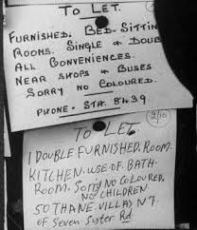 TO LET.
FURNISHED. BED-SITTIN
ROOMS. SINGLE & DOUB
ALL CONVENIENCES.
NEAR SHOPS & BUSES
SORRY NO COLOURED.
PHONE. STA. 8439
TO LET.
1 DOUBLE FURNISHED. ROOM.
KITCHEN. USE. OF. BATH.
ROOM. SORRY NO COLOURED.
NO CHILDREN
50 THANE. VILLAS N7.
OF SEVEN SISTER Rd